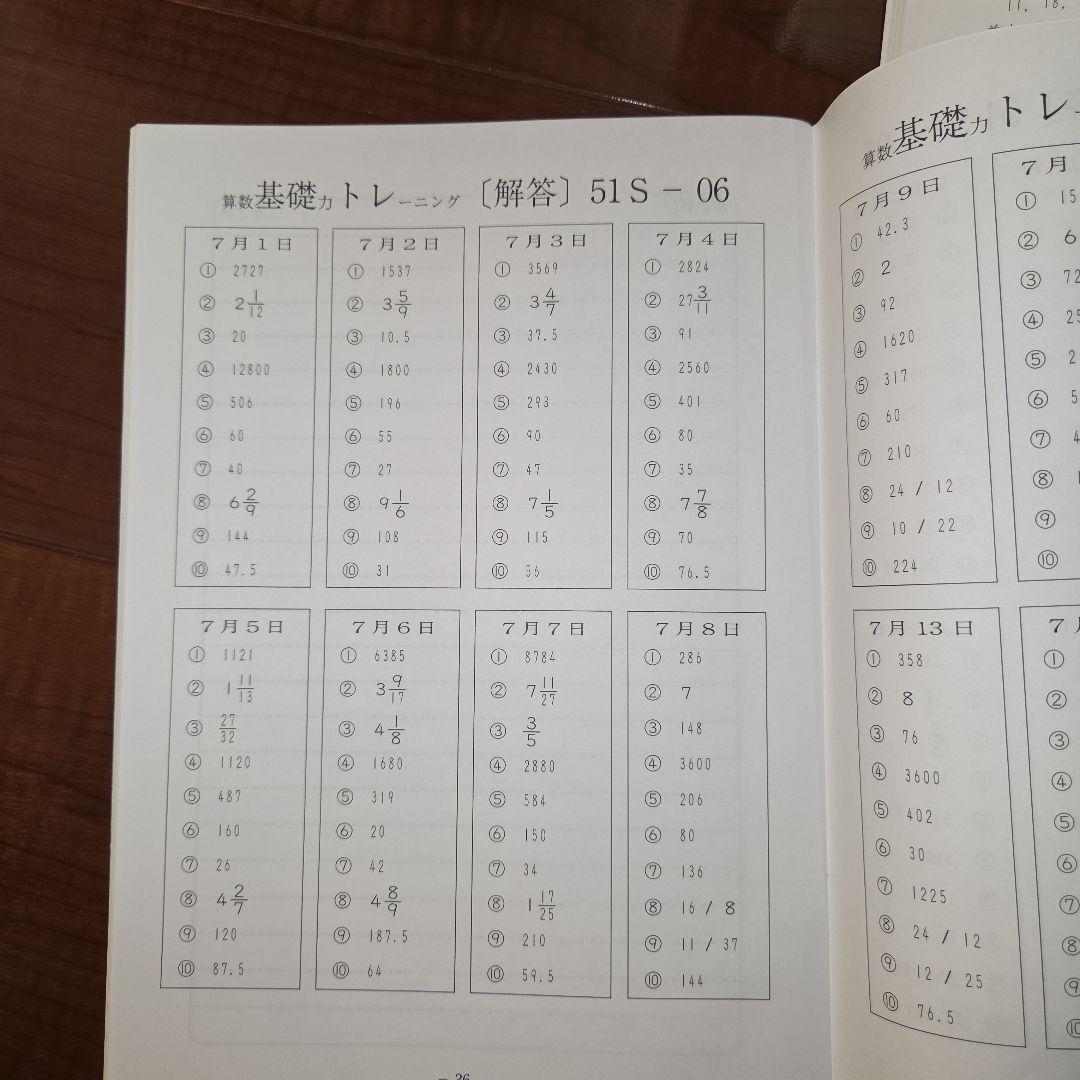 算数基礎力トレーニング〔解答〕51S－06
7月1日
① 2727
② 2 1/12
③ 20
④ 12800
⑤ 506
⑥ 60
⑦ 40
⑧ 6 2/9
⑨ 144
⑩ 47.5
7月2日
① 1537
② 3 5/9
③ 10.5
④ 1800
⑤ 196
⑥ 55
⑦ 27
⑧ 9 1/6
⑨ 108
⑩ 31
7月3日
① 3569
② 3 4/7
③ 37.5
④ 2430
⑤ 293
⑥ 90
⑦ 47
⑧ 7 1/5
⑨ 115
⑩ 36
7月4日
① 2824
② 27 3/11
③ 91
④ 2560
⑤ 401
⑥ 80
⑦ 35
⑧ 7 7/8
⑨ 70
⑩ 76.5
7月5日
① 1121
② 1 11/13
③ 27/32
④ 1120
⑤ 487
⑥ 160
⑦ 26
⑧ 4 2/7
⑨ 120
⑩ 87.5
7月6日
① 6385
② 3 9/17
③ 4 1/8
④ 1680
⑤ 319
⑥ 20
⑦ 42
⑧ 4 8/9
⑨ 187.5
⑩ 64
7月7日
① 8784
② 7 11/27
③ 3/5
④ 2880
⑤ 584
⑥ 150
⑦ 34
⑧ 1 17/25
⑨ 210
⑩ 59.5
7月8日
① 286
② 7
③ 148
④ 3600
⑤ 206
⑥ 80
⑦ 136
⑧ 16 / 8
⑨ 11 / 37
⑩ 144
算数基礎力トレ
7月9日
① 42.3
② 2
③ 92
④ 1620
⑤ 317
⑥ 60
⑦ 210
⑧ 24 / 12
⑨ 10 / 22
⑩ 224
7月
①
②
③
④
⑤
⑥
⑦
⑧
⑨
⑩
7月13日
① 358
② 8
③ 76
④ 3600
⑤ 402
⑥ 30
⑦ 1225
⑧ 24 / 12
⑨ 12 / 25
⑩ 76.5
①
②
③
④
⑤
⑥
⑦
⑧
⑨
⑩